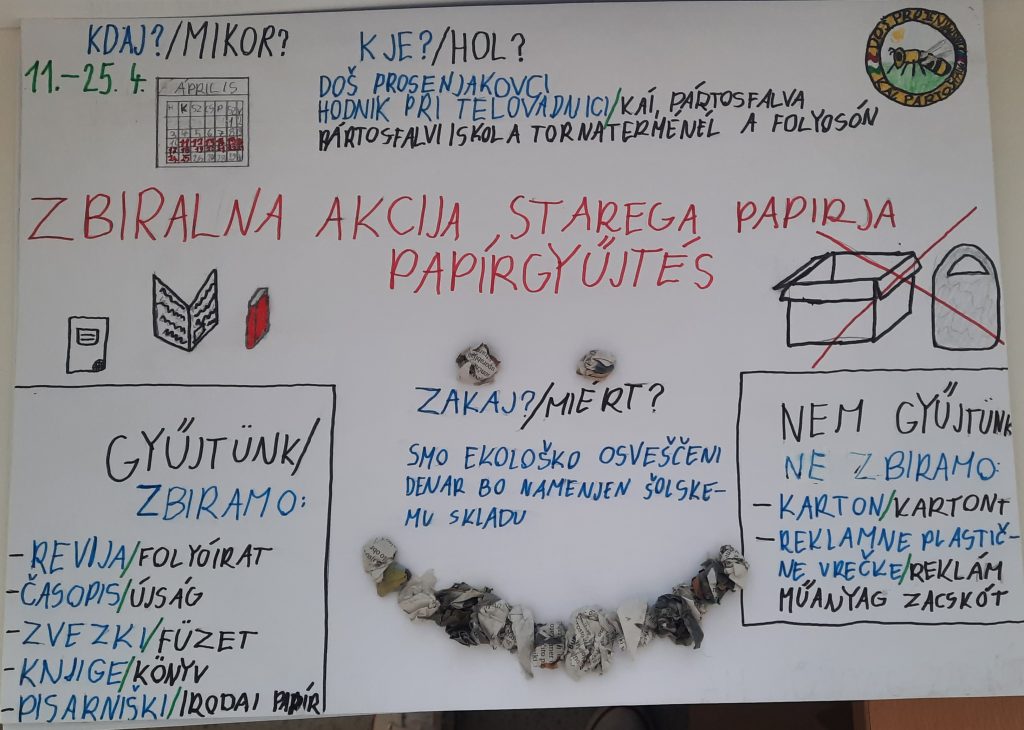 KDAJ?/MIKOR?
11.-25. 4.
ÁPRILIS
KJE?/HOL?
DOŠ PROSENJAKOVCI
HODNIK PRI TELOVADNICI/KAI, PÁRTOSFALVA
PÁRTOSFALVI ISKOLA TORNATERMÉNÉL A FOLYOSÓN
ZBIRALNA AKCIJA STAREGA PAPIRJA
PAPÍRGYŰJTÉS
GYŰJTÜNK/
ZBIRAMO:
- REVIJA/FOLYÓIRAT
- ČASOPIS/ÚJSÁG
- ZVEZKI/FÜZET
- KNJIGE/KÖNYV
- PISARNIŠKI/IRODAI PAPÍR
ZAKAJ?/MIÉRT?
SMO EKOLOŠKO OSVEŠČENI
DENAR BO NAMENJEN ŠOLSKE-
MU SKLADU
NEM GYŰJTÜNK
NE ZBIRAMO:
- KARTON/KARTONT
- REKLAMNE PLASTIČ-
NE VREČKE/REKLÁM
MŰANYAG ZACSKÓT